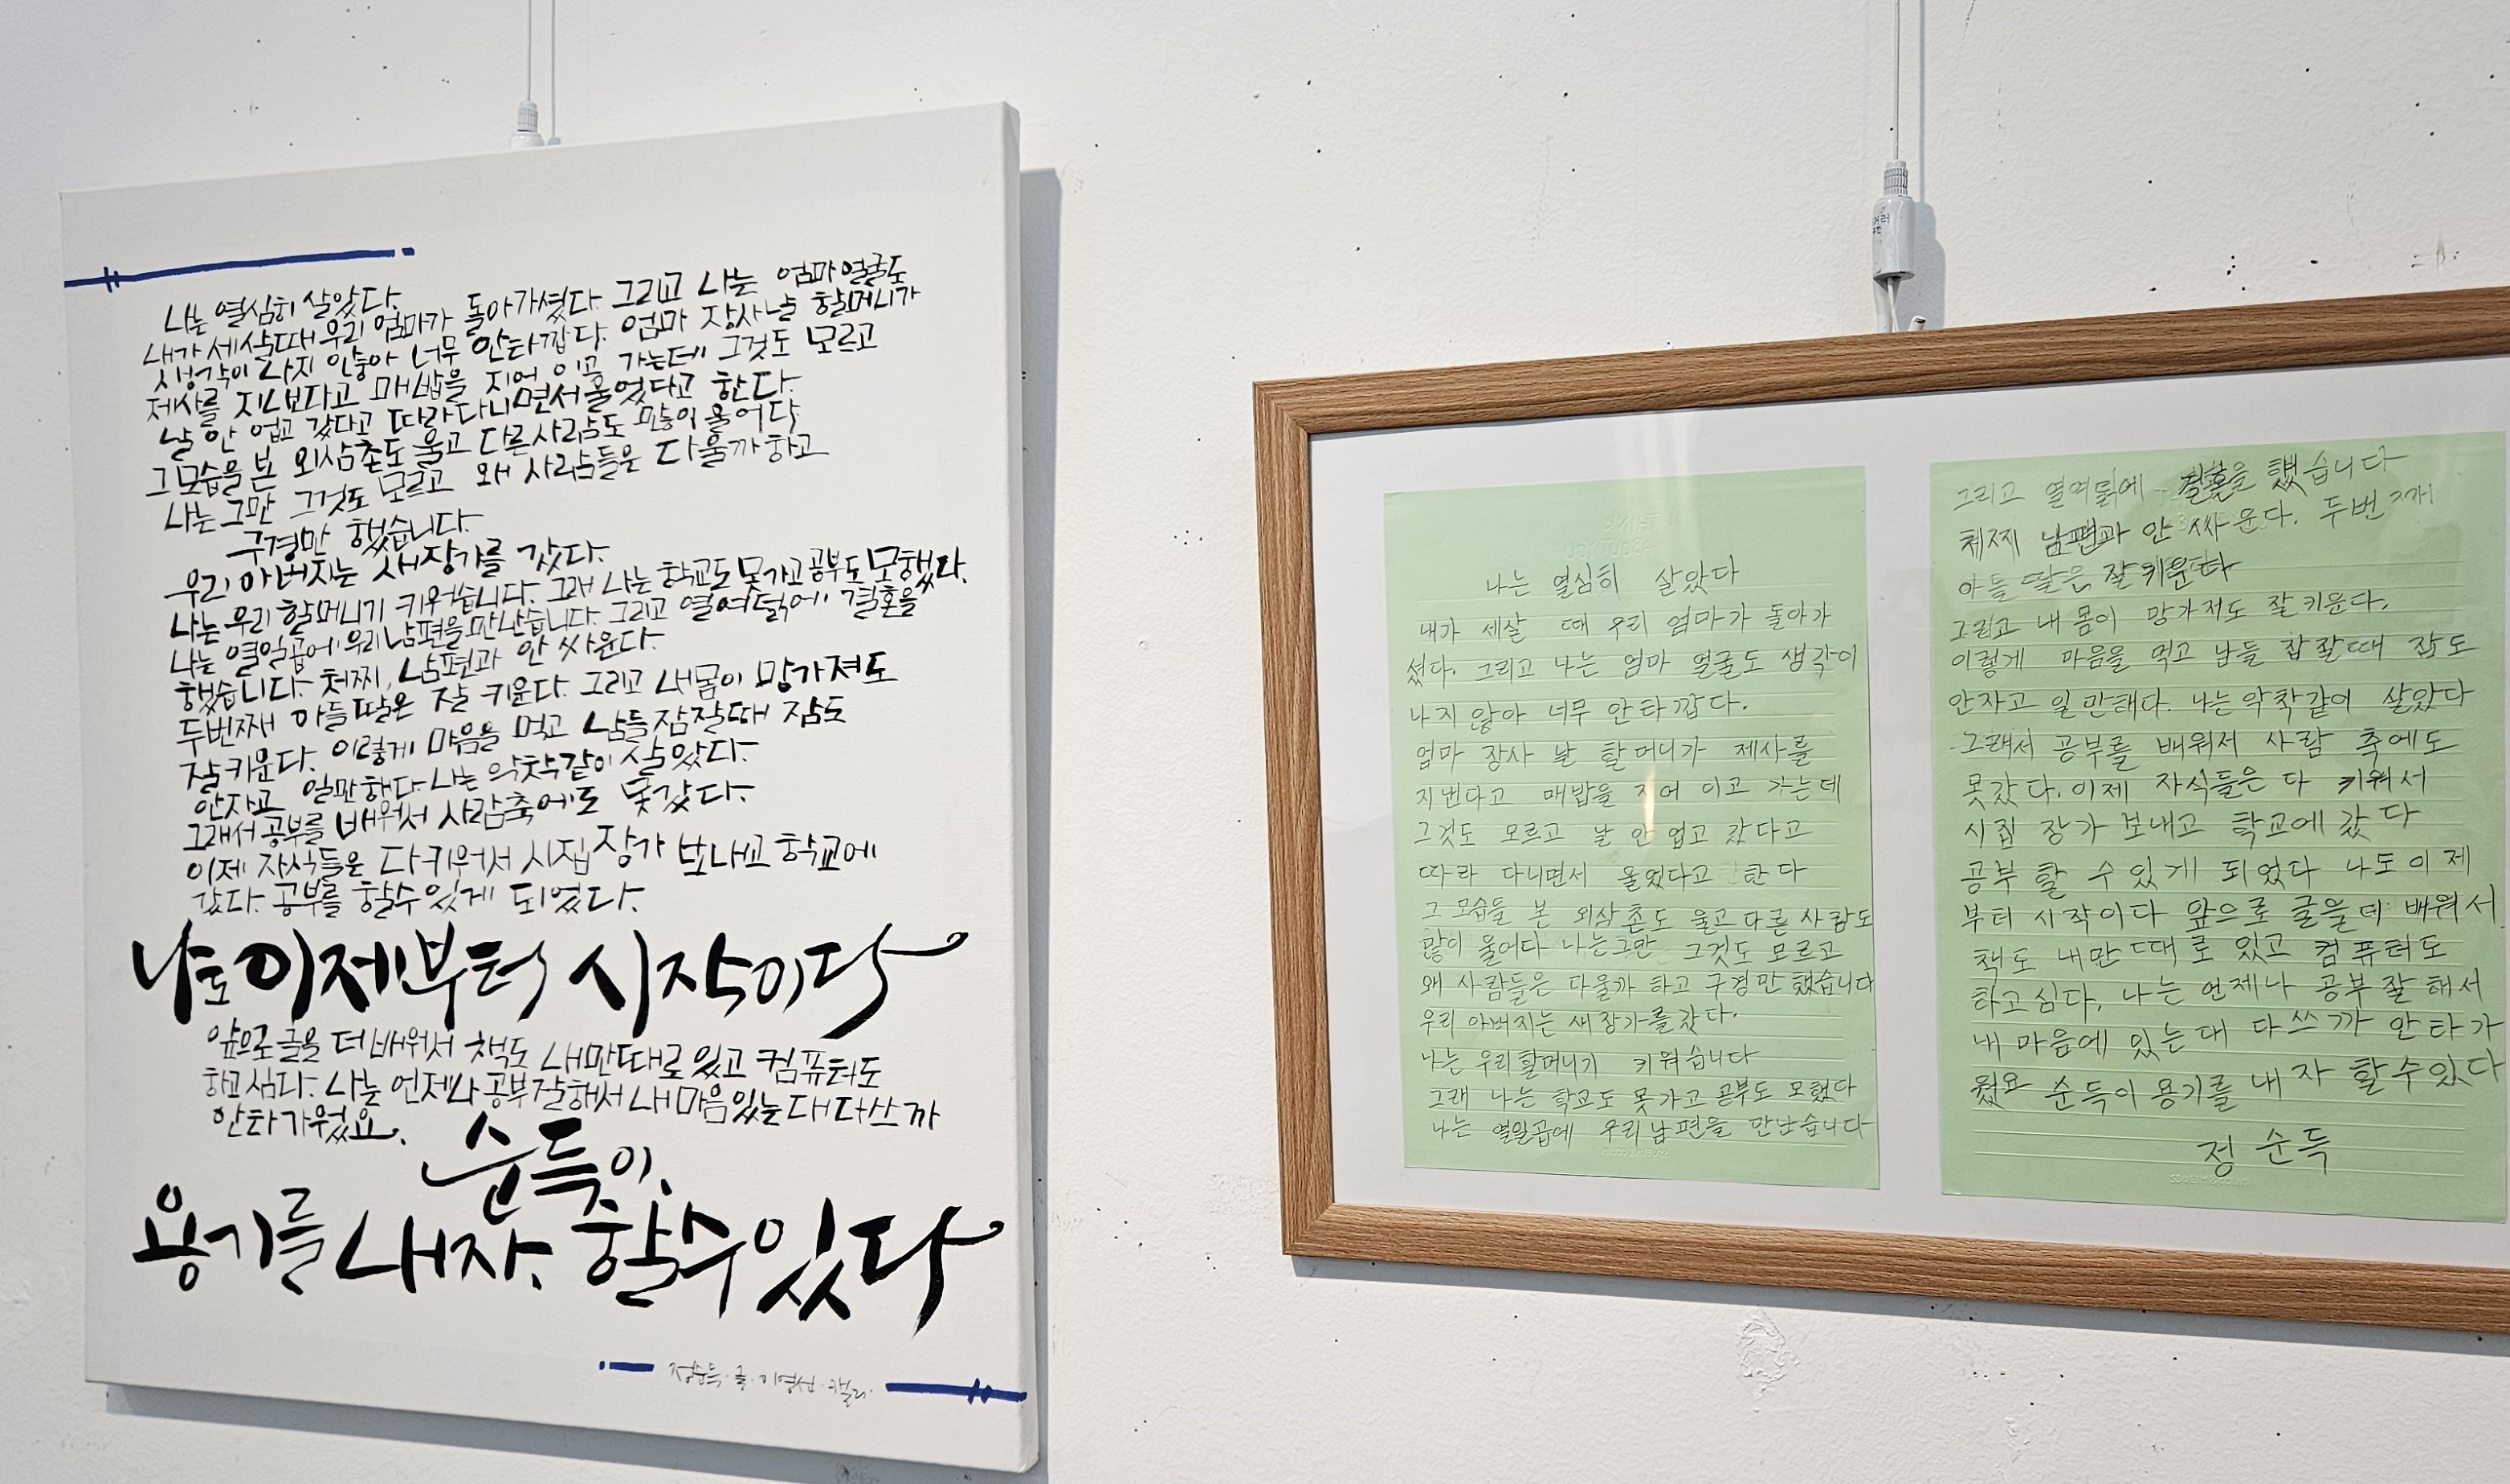 나는 열심히 살았다.
내가 세살때 우리 엄마가 돌아가셨다. 그리고 나는 엄마 얼굴도
생각이 나지 안숳아 너무 안타깝다. 엄마 장사날 할머니가
제사를 지낸다고 매밥을 지어 이고 가는데 그것도 모르고
날 안 업고 갔다고 따라다니면서 울었다고 한다.
그 모습을 본 외삼촌도 울고 다른 사람도 많이 울어다
나는 그만 그것도 모르고 왜 사람들은 다 울까 하고
구경만 했습니다.
우리 아버지는 새장가를 갔다.
나는 우리 할머니기 키워습니다. 그래 나는 학교도 못가고 공부도 모했다.
나는 열일곱에 우리 남편을 만났습니다. 그리고 열여덝에 결혼을
했습니다. 처찌, 남편과 안 싸운다.
두번째 아들 딸은 잘 키운다. 그리고 내몸이 망가져도
잘 키운다. 이렇게 마음을 먹고 남들 잠잘때 잠도
안자고 일만해다. 나는 악착같이 살았다.
그래서 공부를 배워서 사람축에도 못갔다.
이제 자식들은 다 키워서 시집 장가 보내고 학교에
갔다. 공부를 할수있게 되었다.
나도 이제부터 시작이다
앞으로 글을 더 배워서 책도 내만때로 있고 컴퓨터도
하고 심다. 나는 언제나 공부잘해서 내 마음 있는대 다 쓰까
안타가웠요.
순득이,
용기를 내자. 할수있다
정순득·글·이영선·캘리
나는 열심히 살았다
내가 세살 때 우리 엄마가 돌아가
셨다. 그리고 나는 엄마 얼굴도 생각이
나지 않아 너무 안타깝다.
엄마 장사 날 할머니가 제사를
지낸다고 매밥을 지어 이고 가는데
그것도 모르고 날 안 업고 갔다고
따라 다니면서 울었다고 한다
그 모습들 본 외삼촌도 울고 다른 사람도
많이 울어다 나는 그만 그것도 모르고
왜 사람들은 다울까 하고 구경만 했습니다
우리 아버지는 새장가를 갔다.
나는 우리할머니기 키워습니다
그래 나는 학교도 못가고 공부도 모했다
나는 열일곱에 우리남편을 만났습니다
그리고 열여덝에 결혼을 했습니다
체찌 남편과 안 싸운다. 두번재
아들 딸은 잘키운다
그리고 내 몸이 망가저도 잘키운다.
이렇게 마음을 먹고 남들 잠잘때 잠도
안자고 일만해다. 나는악착같이 살았다
그래서 공부를 배워서 사람 축에도
못갔다. 이제 자식들은 다 키워서
시집 장가 보내고 학교에 갔다
공부 할 수 있게 되었다 나도 이제
부터 시작이다 앞으로 글을 더 배워서
책도 내만 때로 있고 컴퓨터도
하고심다, 나는 언제나 공부잘해서
내 마음에 있는대 다쓰까 안타가
웠요 순득이 용기를 내자 할수있다
정 순득